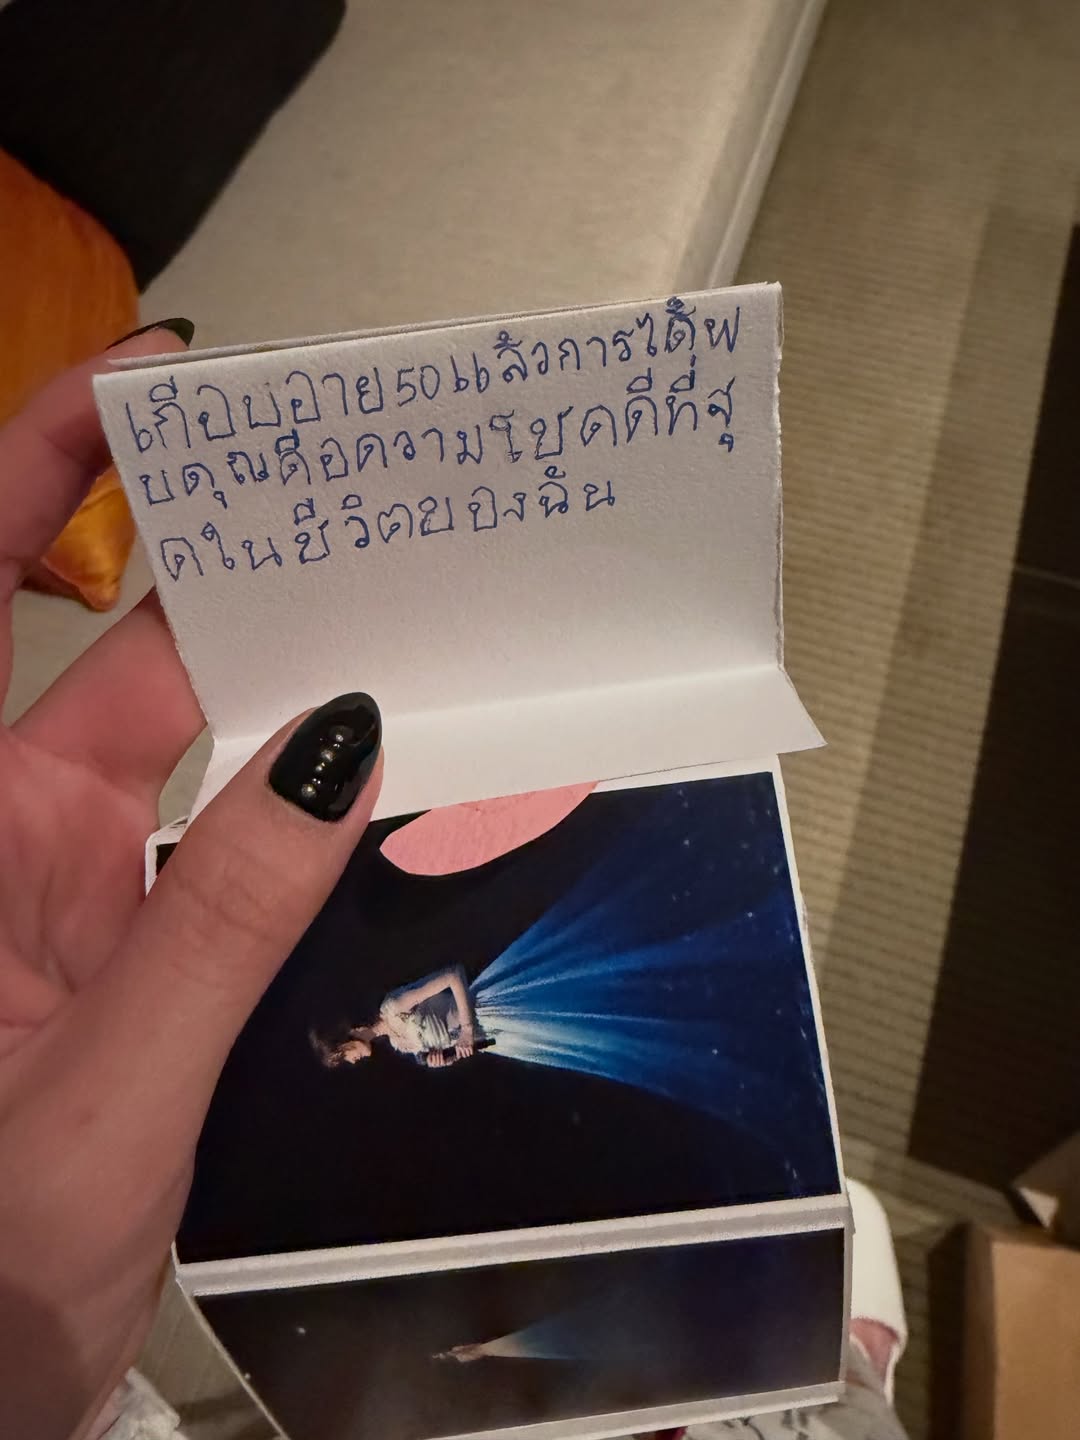 เกือบอายุ50แล้วการได้พ
บคุณคือความโชคดีที่สุ
ดในชีวิตของฉัน